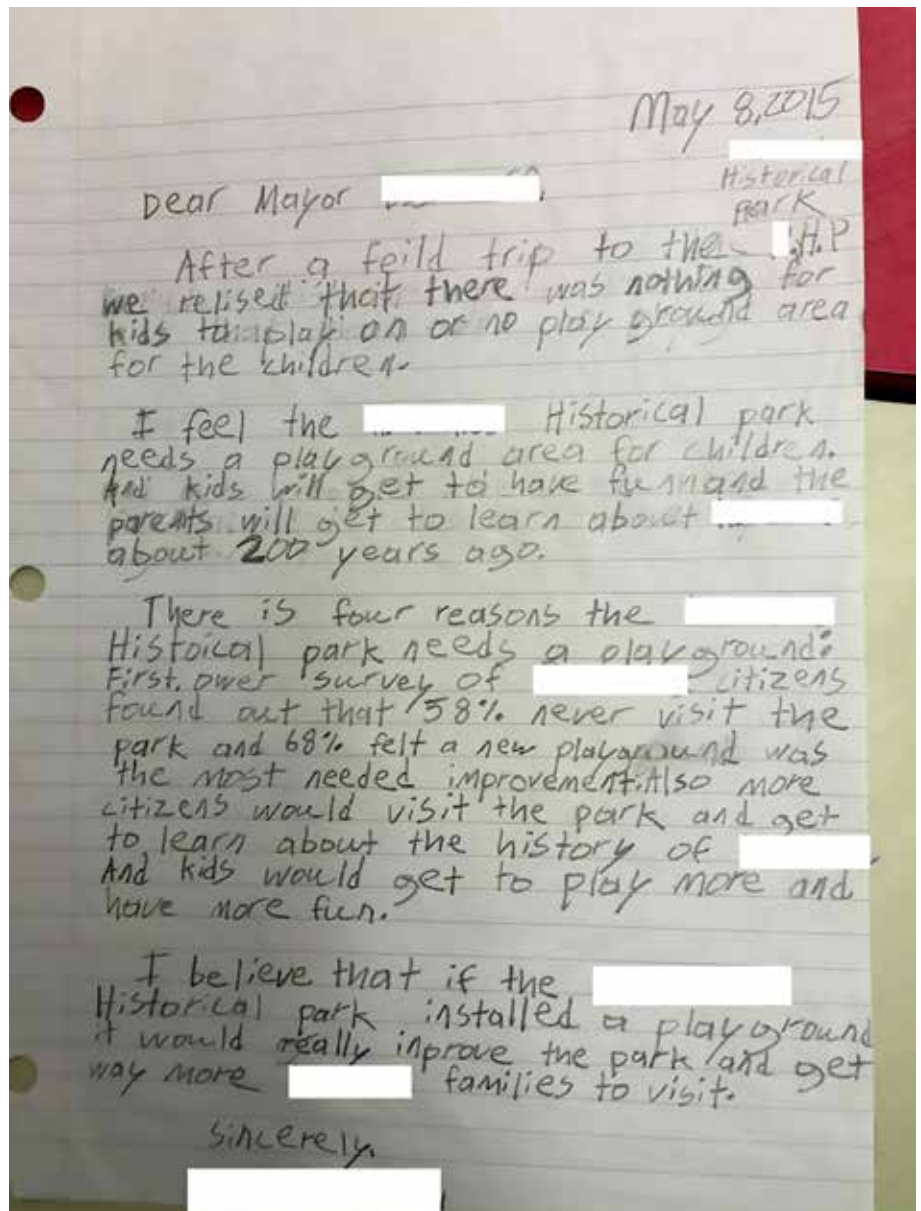 May 8, 2015
Historical
park
Dear Mayor
After a feild trip to the .H.P
we relised that there was nothing for
kids to play on or no play ground area
for the children.
I feel the Historical park
needs a playground area for children.
And kids will get to have funn and the
parents will get to learn about
about 200 years ago.
There is four reasons the
Histoical park needs a playground:
First, ower survey of citizens
found out that 58% never visit the
park and 68% felt a new playground was
the most needed improvement. Also more
citizens would visit the park and get
to learn about the history of .
And kids would get to play more and
have more fun.
I believe that if the
Historical park installed a playground
it would really inprove the park and get
way more families to visit.
sincerely,